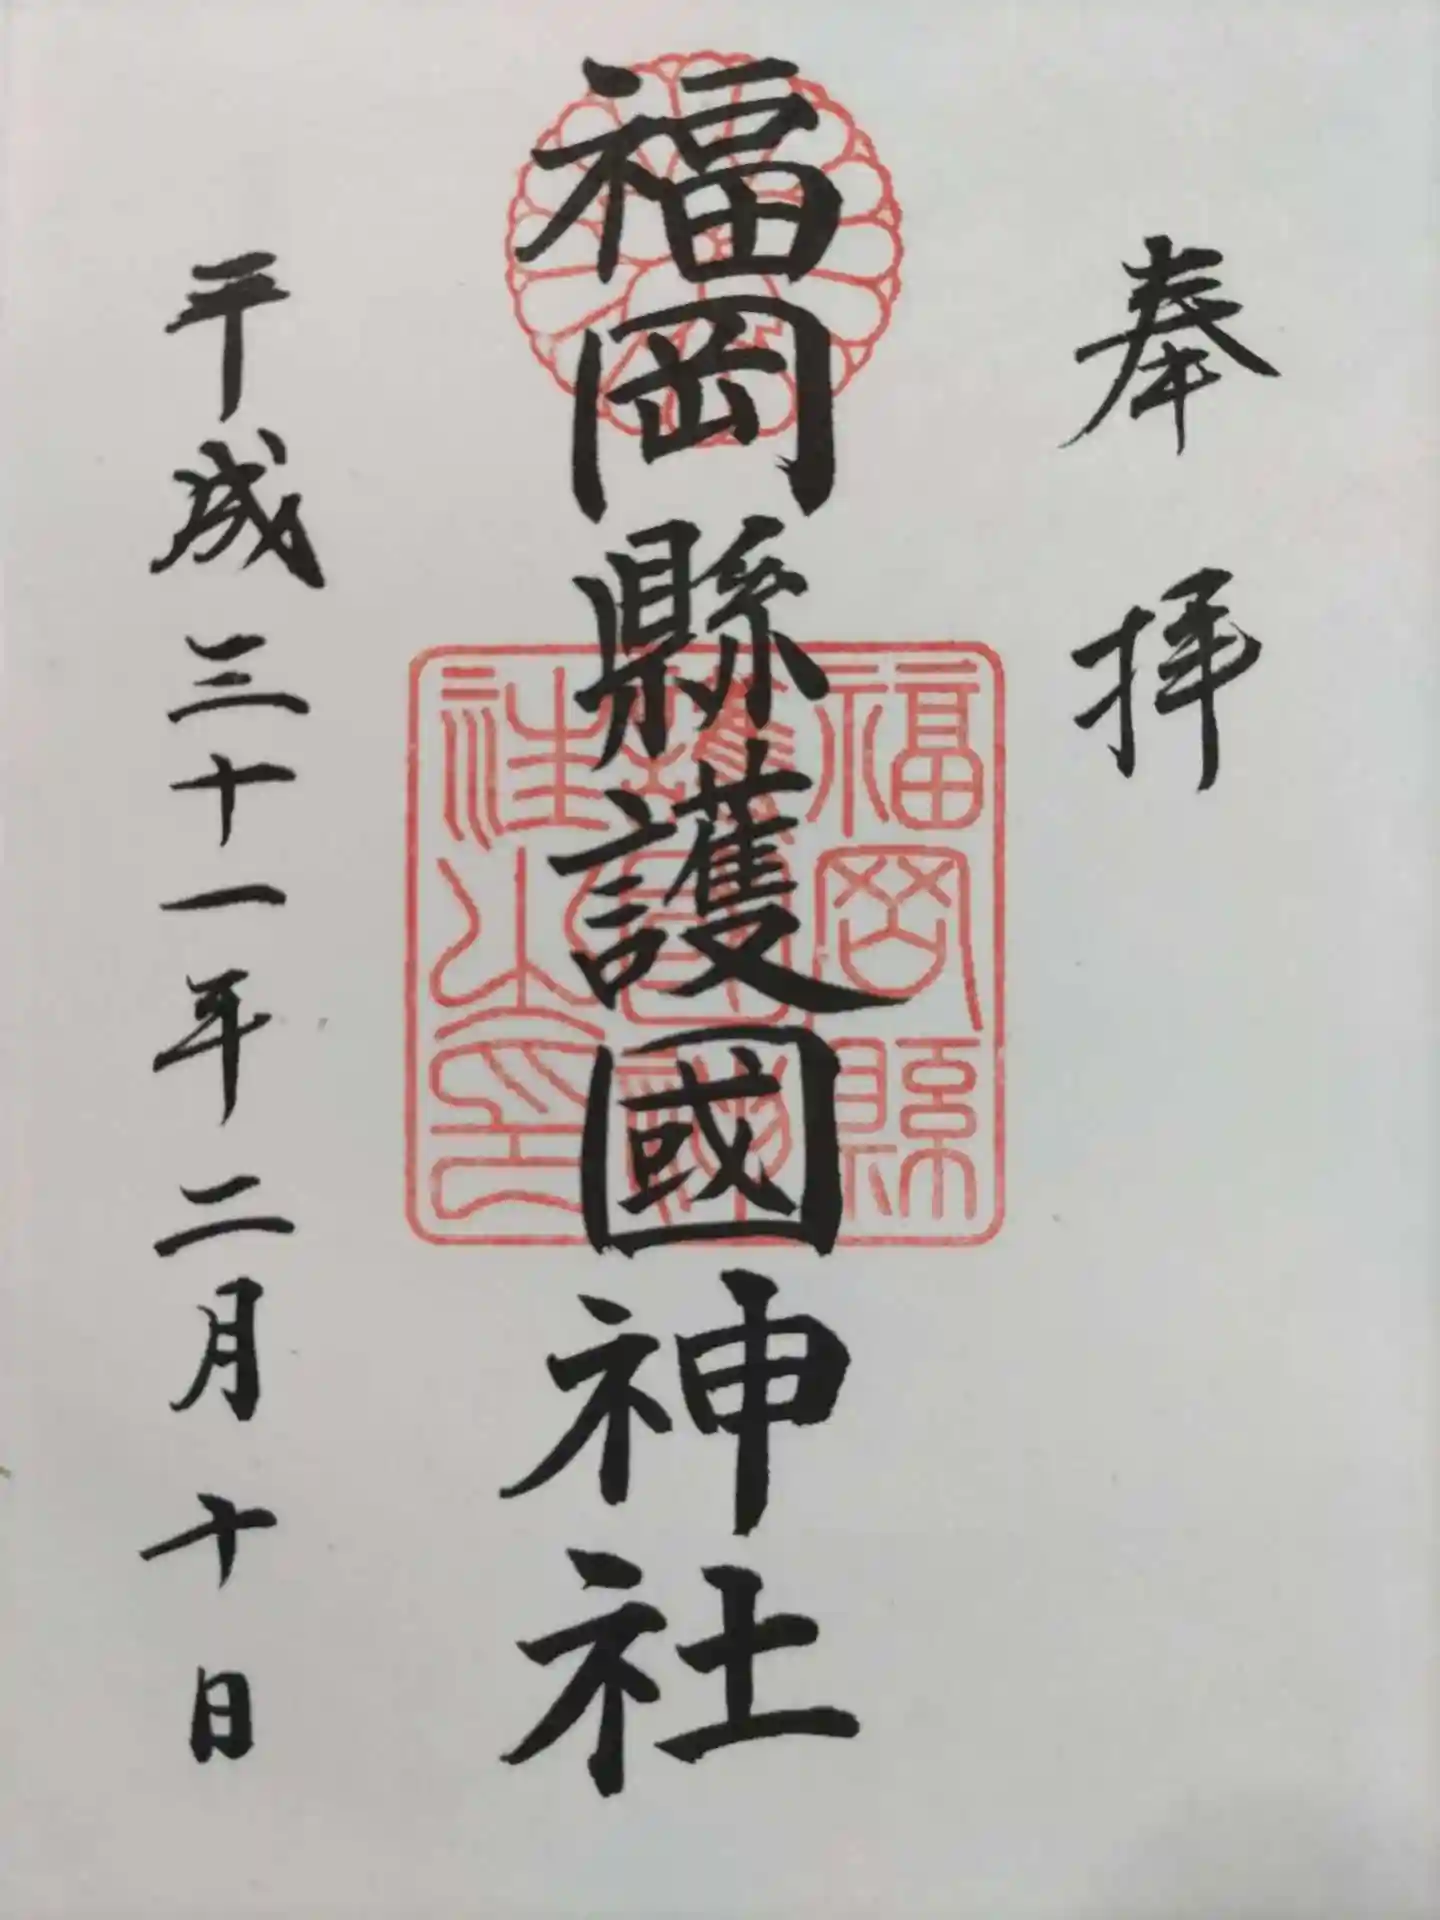 奉拝
福岡縣護國神社
福岡縣
護國神
社之印
平成三十一年二月十日